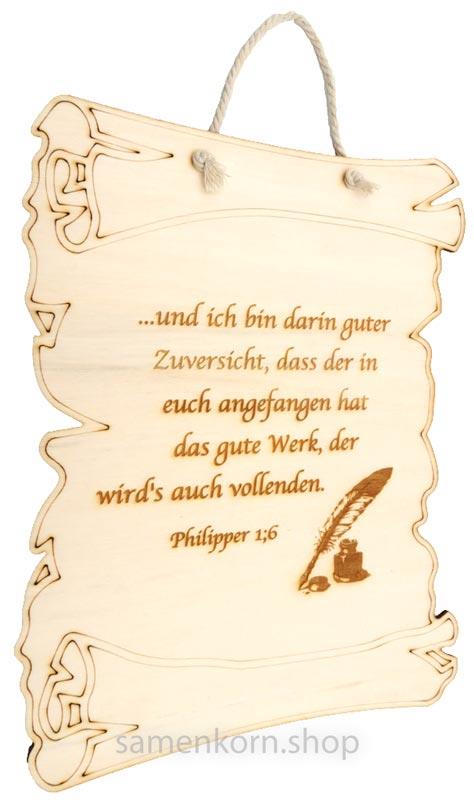 ...und ich bin darin guter
Zuversicht, dass der in
euch angefangen hat
das gute Werk, der
wird's auch vollenden.
Philipper 1;6
samenkorn.shop